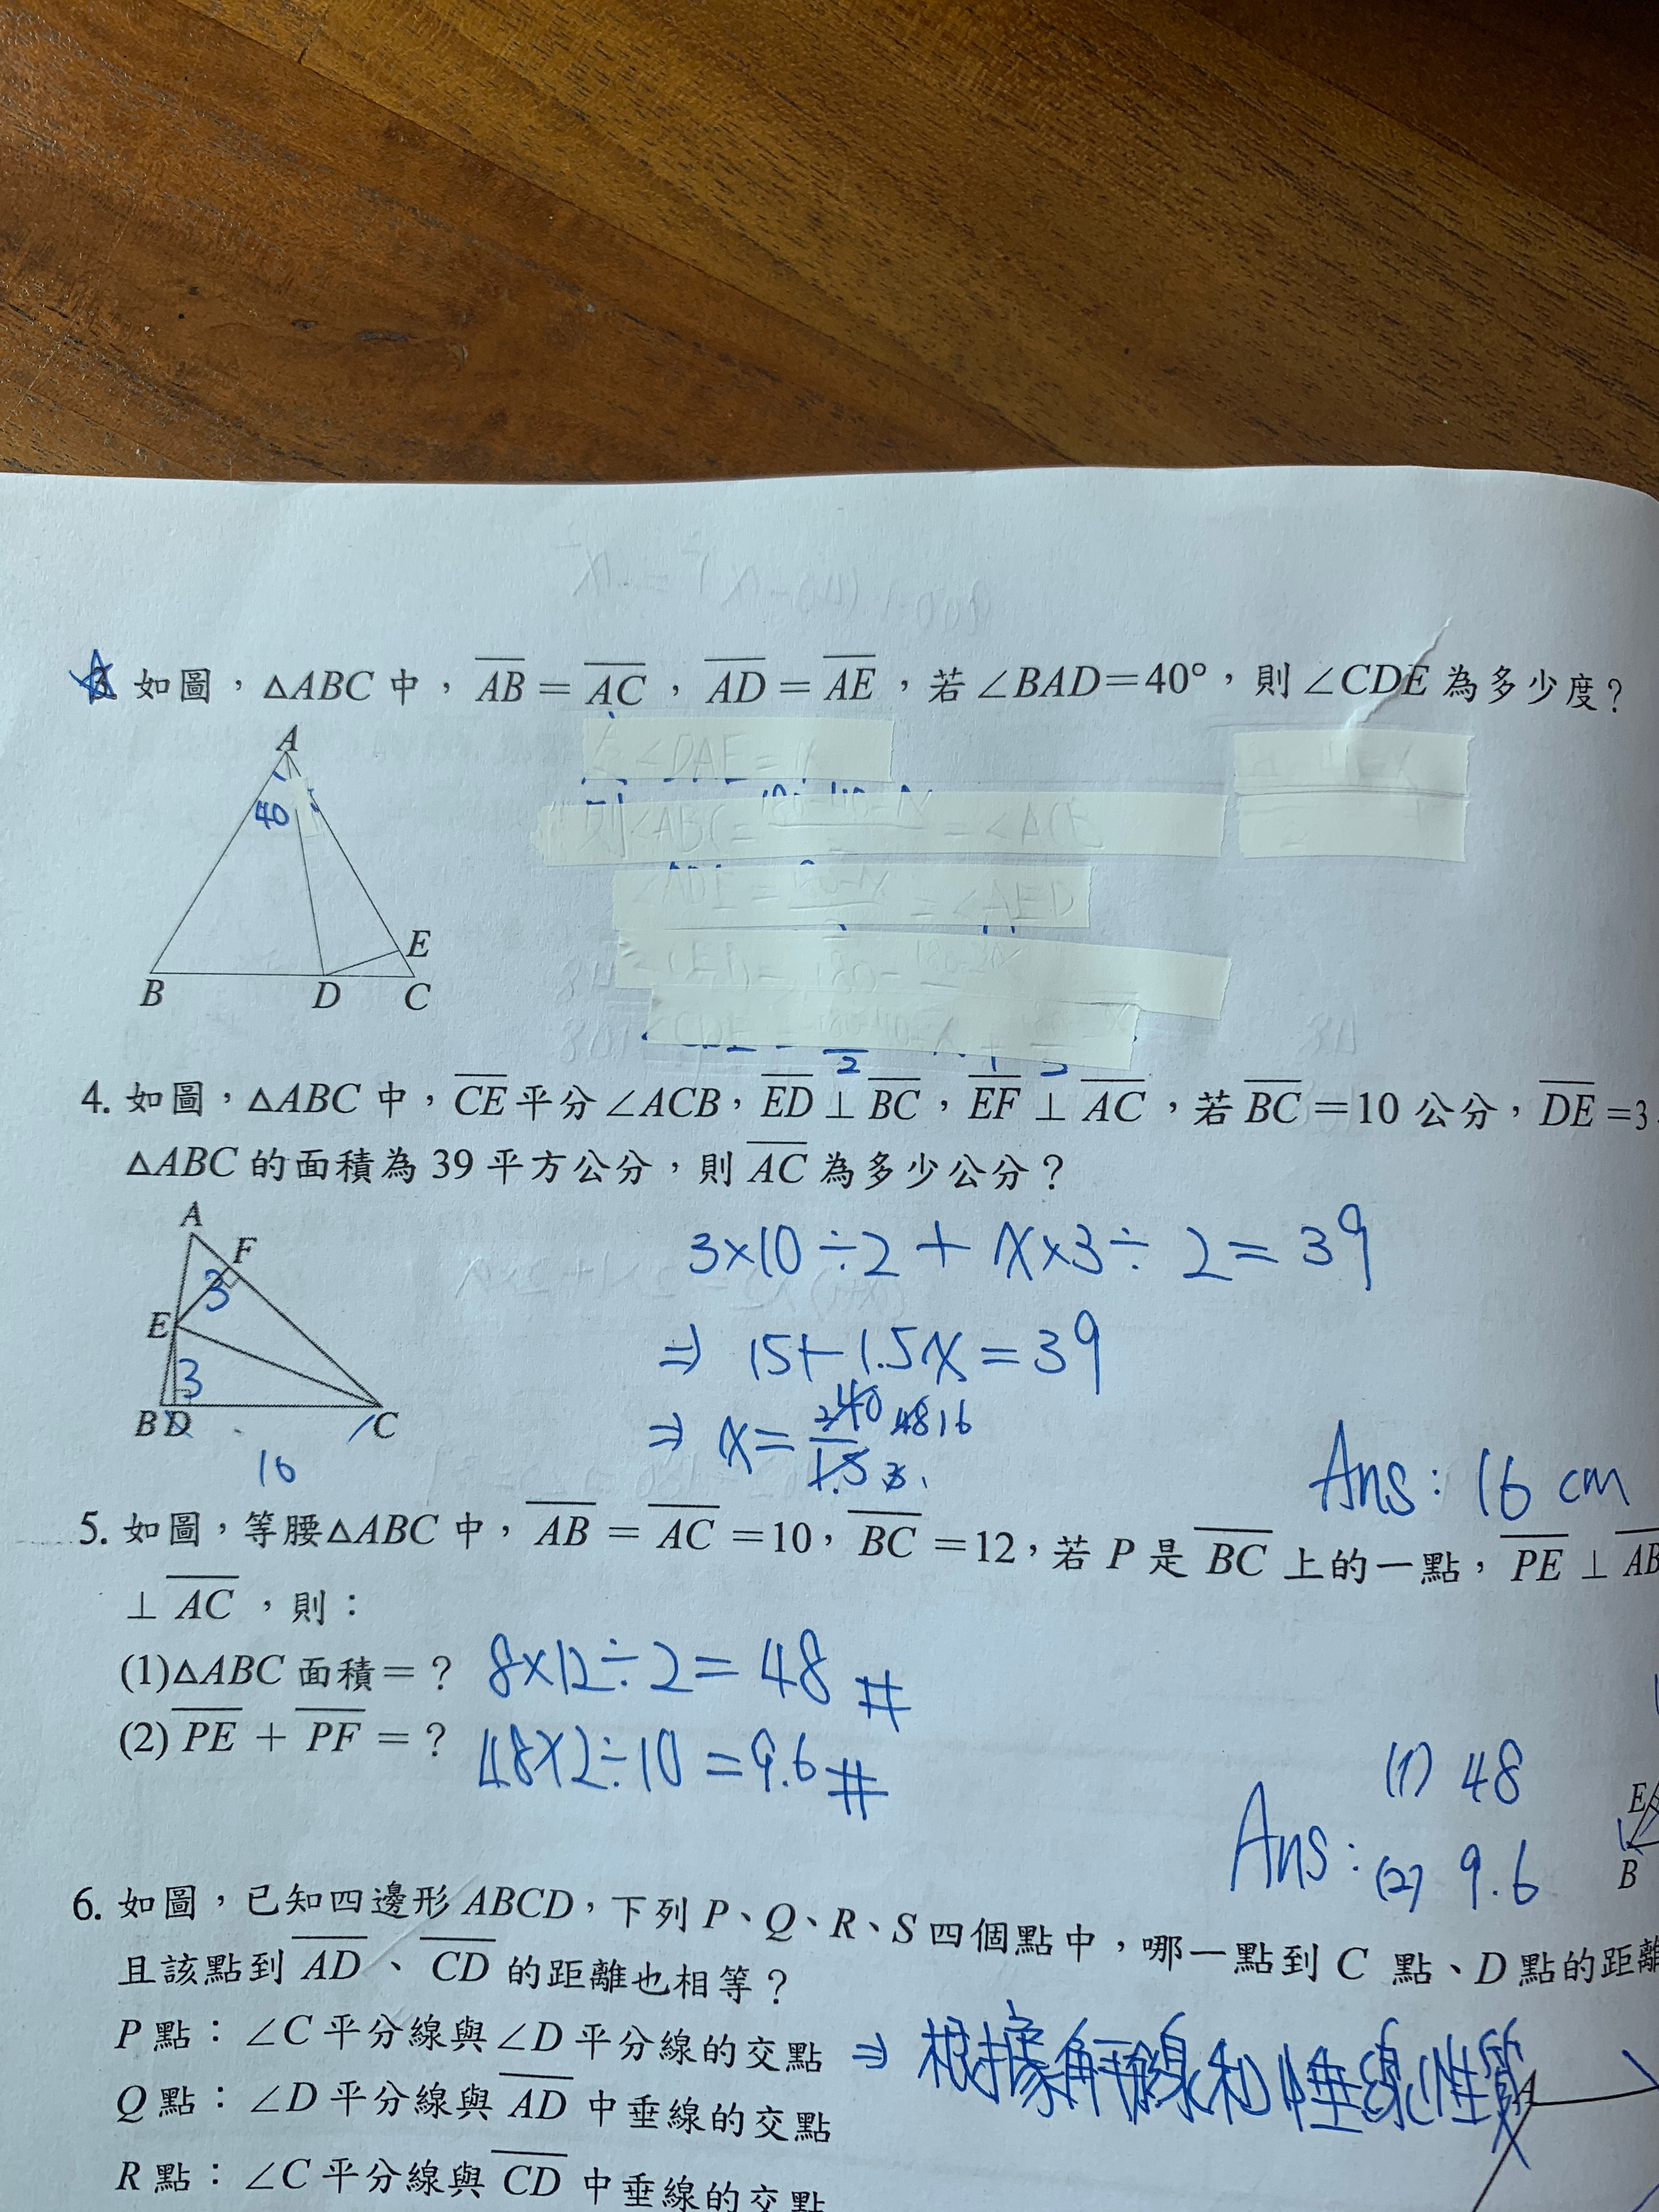 3. 如圖，△ABC 中，AB = AC，AD = AE，若∠BAD=40°，則∠CDE 為多少度？
A
40
E
B D C
4. 如圖，△ABC 中，CE 平分∠ACB，ED⊥BC，EF⊥AC，若 BC=10 公分，DE=3
△ABC 的面積為 39 平方公分，則 AC 為多少公分？
A
F
3
E
3
B D C
10
3×10÷2+x×3÷2=39
⇒ 15+1.5x=39
⇒ x=
Ans: 16 cm
5. 如圖，等腰△ABC 中，AB = AC =10，BC =12，若 P 是 BC 上的一點，PE⊥AB
⊥AC，則：
(1)△ABC 面積=？ 8×12÷2=48 #
(2) PE + PF =？ 48×2÷10=9.6 #
(1) 48
Ans: (2) 9.6
E
B
6. 如圖，已知四邊形 ABCD，下列 P、Q、R、S 四個點中，哪一點到 C 點、D 點的距離
且該點到 AD、CD 的距離也相等？
P 點：∠C 平分線與∠D 平分線的交點 ⇒ 根據角平分線和中垂線性質
Q 點：∠D 平分線與 AD 中垂線的交點
R 點：∠C 平分線與 CD 中垂線的交點
A